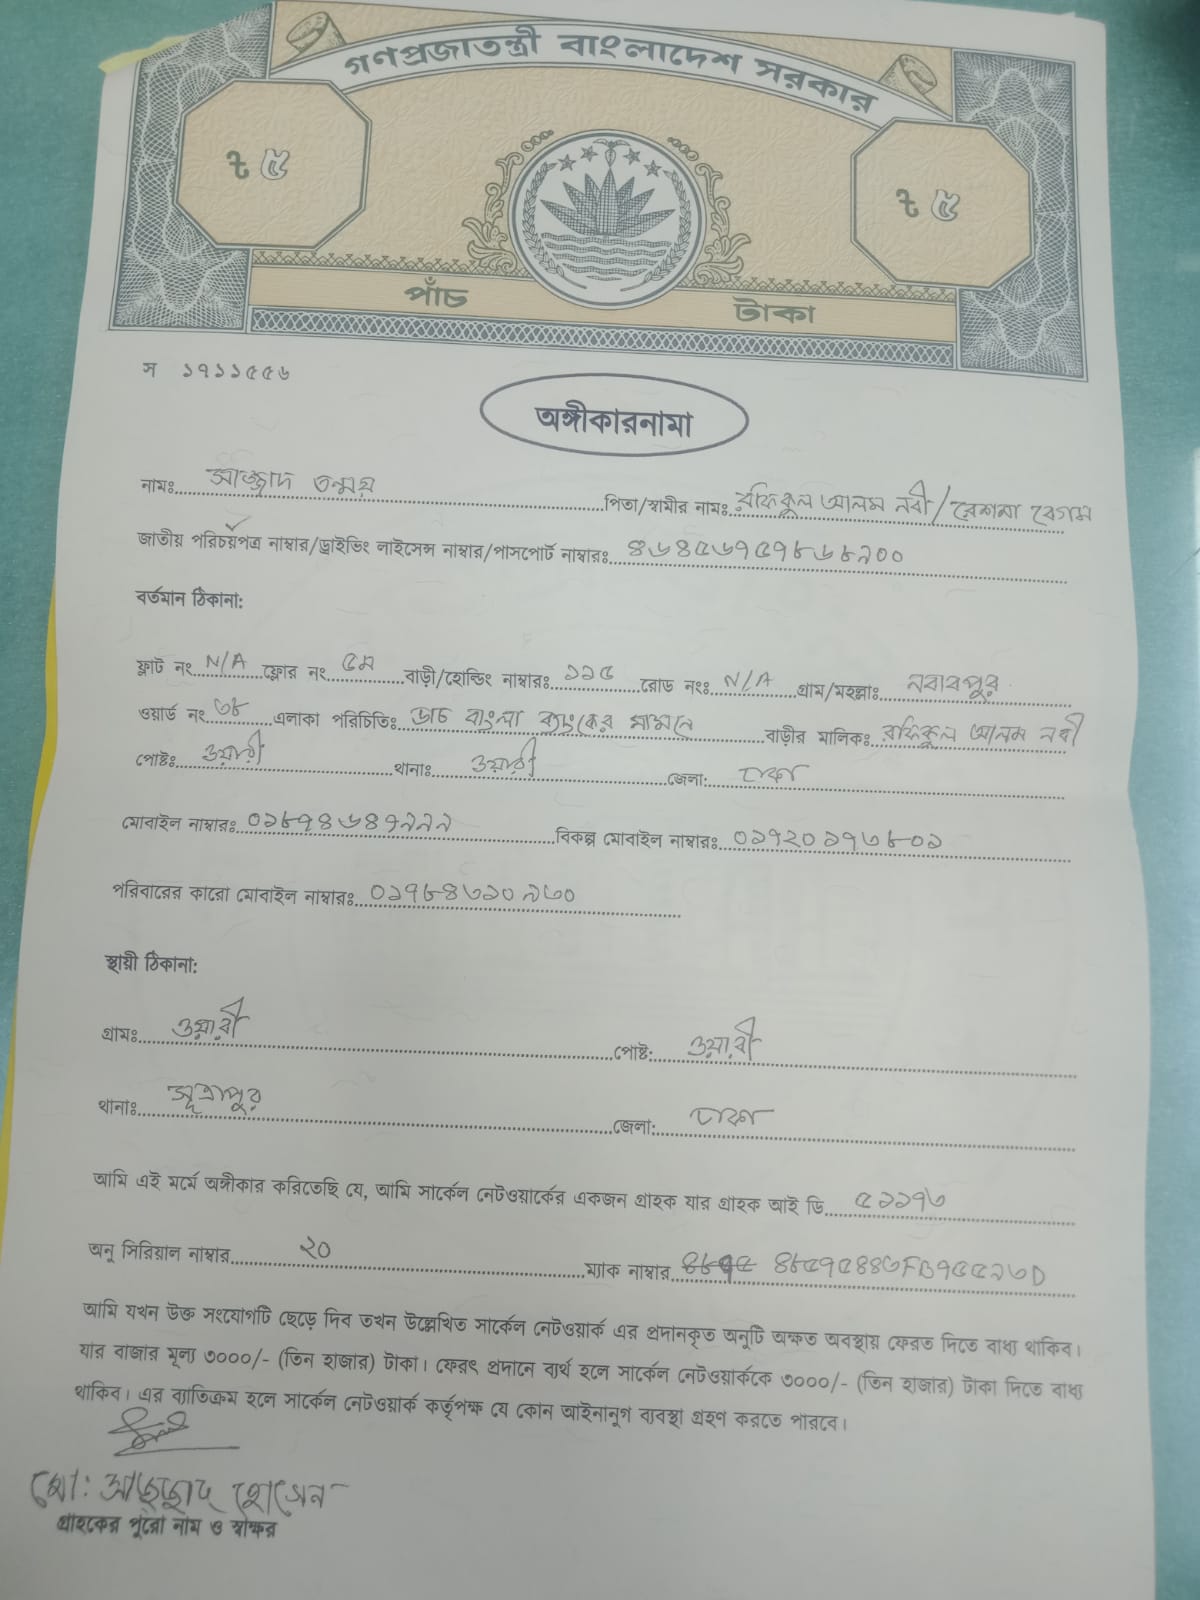 গণপ্রজাতন্ত্রী বাংলাদেশ সরকার
৳ ৫ ৳ ৫
পাঁচ টাকা
স ১৭১১৫৫৬
অঙ্গীকারনামা
নামঃ সাজ্জাদ তন্ময় পিতা/স্বামীর নামঃ রফিকুল আলম নবী/ রেশমা বেগম
জাতীয় পরিচয়পত্র নাম্বার/ড্রাইভিং লাইসেন্স নাম্বার/পাসপোর্ট নাম্বারঃ ৪৬৪৫৬৭৫৭৮৬৮৯০০
বর্তমান ঠিকানা:
ফ্লাট নং N/A ফ্লোর নং ৫ম বাড়ী/হোল্ডিং নাম্বারঃ ১১৫ রোড নংঃ N/A গ্রাম/মহল্লাঃ নবাবপুর
ওয়ার্ড নং ৩৮ এলাকা পরিচিতিঃ ডাচ বাংলা ব্যাংকের সামনে বাড়ীর মালিকঃ রফিকুল আলম নবী
পোষ্টঃ ওয়ারী থানাঃ ওয়ারী জেলা: ঢাকা
মোবাইল নাম্বারঃ ০১৮৭৪৬৪৭৯৯৯ বিকল্প মোবাইল নাম্বারঃ ০১৭২০১৭৩৮০১
পরিবারের কারো মোবাইল নাম্বারঃ ০১৭৮৪৩১০৯৩০
স্থায়ী ঠিকানা:
গ্রামঃ ওয়ারী পোষ্ট: ওয়ারী
থানাঃ সূত্রাপুর জেলা: ঢাকা
আমি এই মর্মে অঙ্গীকার করিতেছি যে, আমি সার্কেল নেটওয়ার্কের একজন গ্রাহক যার গ্রাহক আই ডি ৫১১৭৩
অনু সিরিয়াল নাম্বার ২০ ম্যাক নাম্বার ৪৮৫৭৫৪৪৩FB৭৫৫৯৩D
আমি যখন উক্ত সংযোগটি ছেড়ে দিব তখন উল্লেখিত সার্কেল নেটওয়ার্ক এর প্রদানকৃত অনুটি অক্ষত অবস্থায় ফেরত দিতে বাধ্য থাকিব।
যার বাজার মূল্য ৩০০০/- (তিন হাজার) টাকা। ফেরৎ প্রদানে ব্যর্থ হলে সার্কেল নেটওয়ার্ককে ৩০০০/- (তিন হাজার) টাকা দিতে বাধ্য
থাকিব। এর ব্যাতিক্রম হলে সার্কেল নেটওয়ার্ক কর্তৃপক্ষ যে কোন আইনানুগ ব্যবস্থা গ্রহণ করতে পারবে।
মো: সাজ্জাদ হোসেন
গ্রাহকের পুরো নাম ও স্বাক্ষর